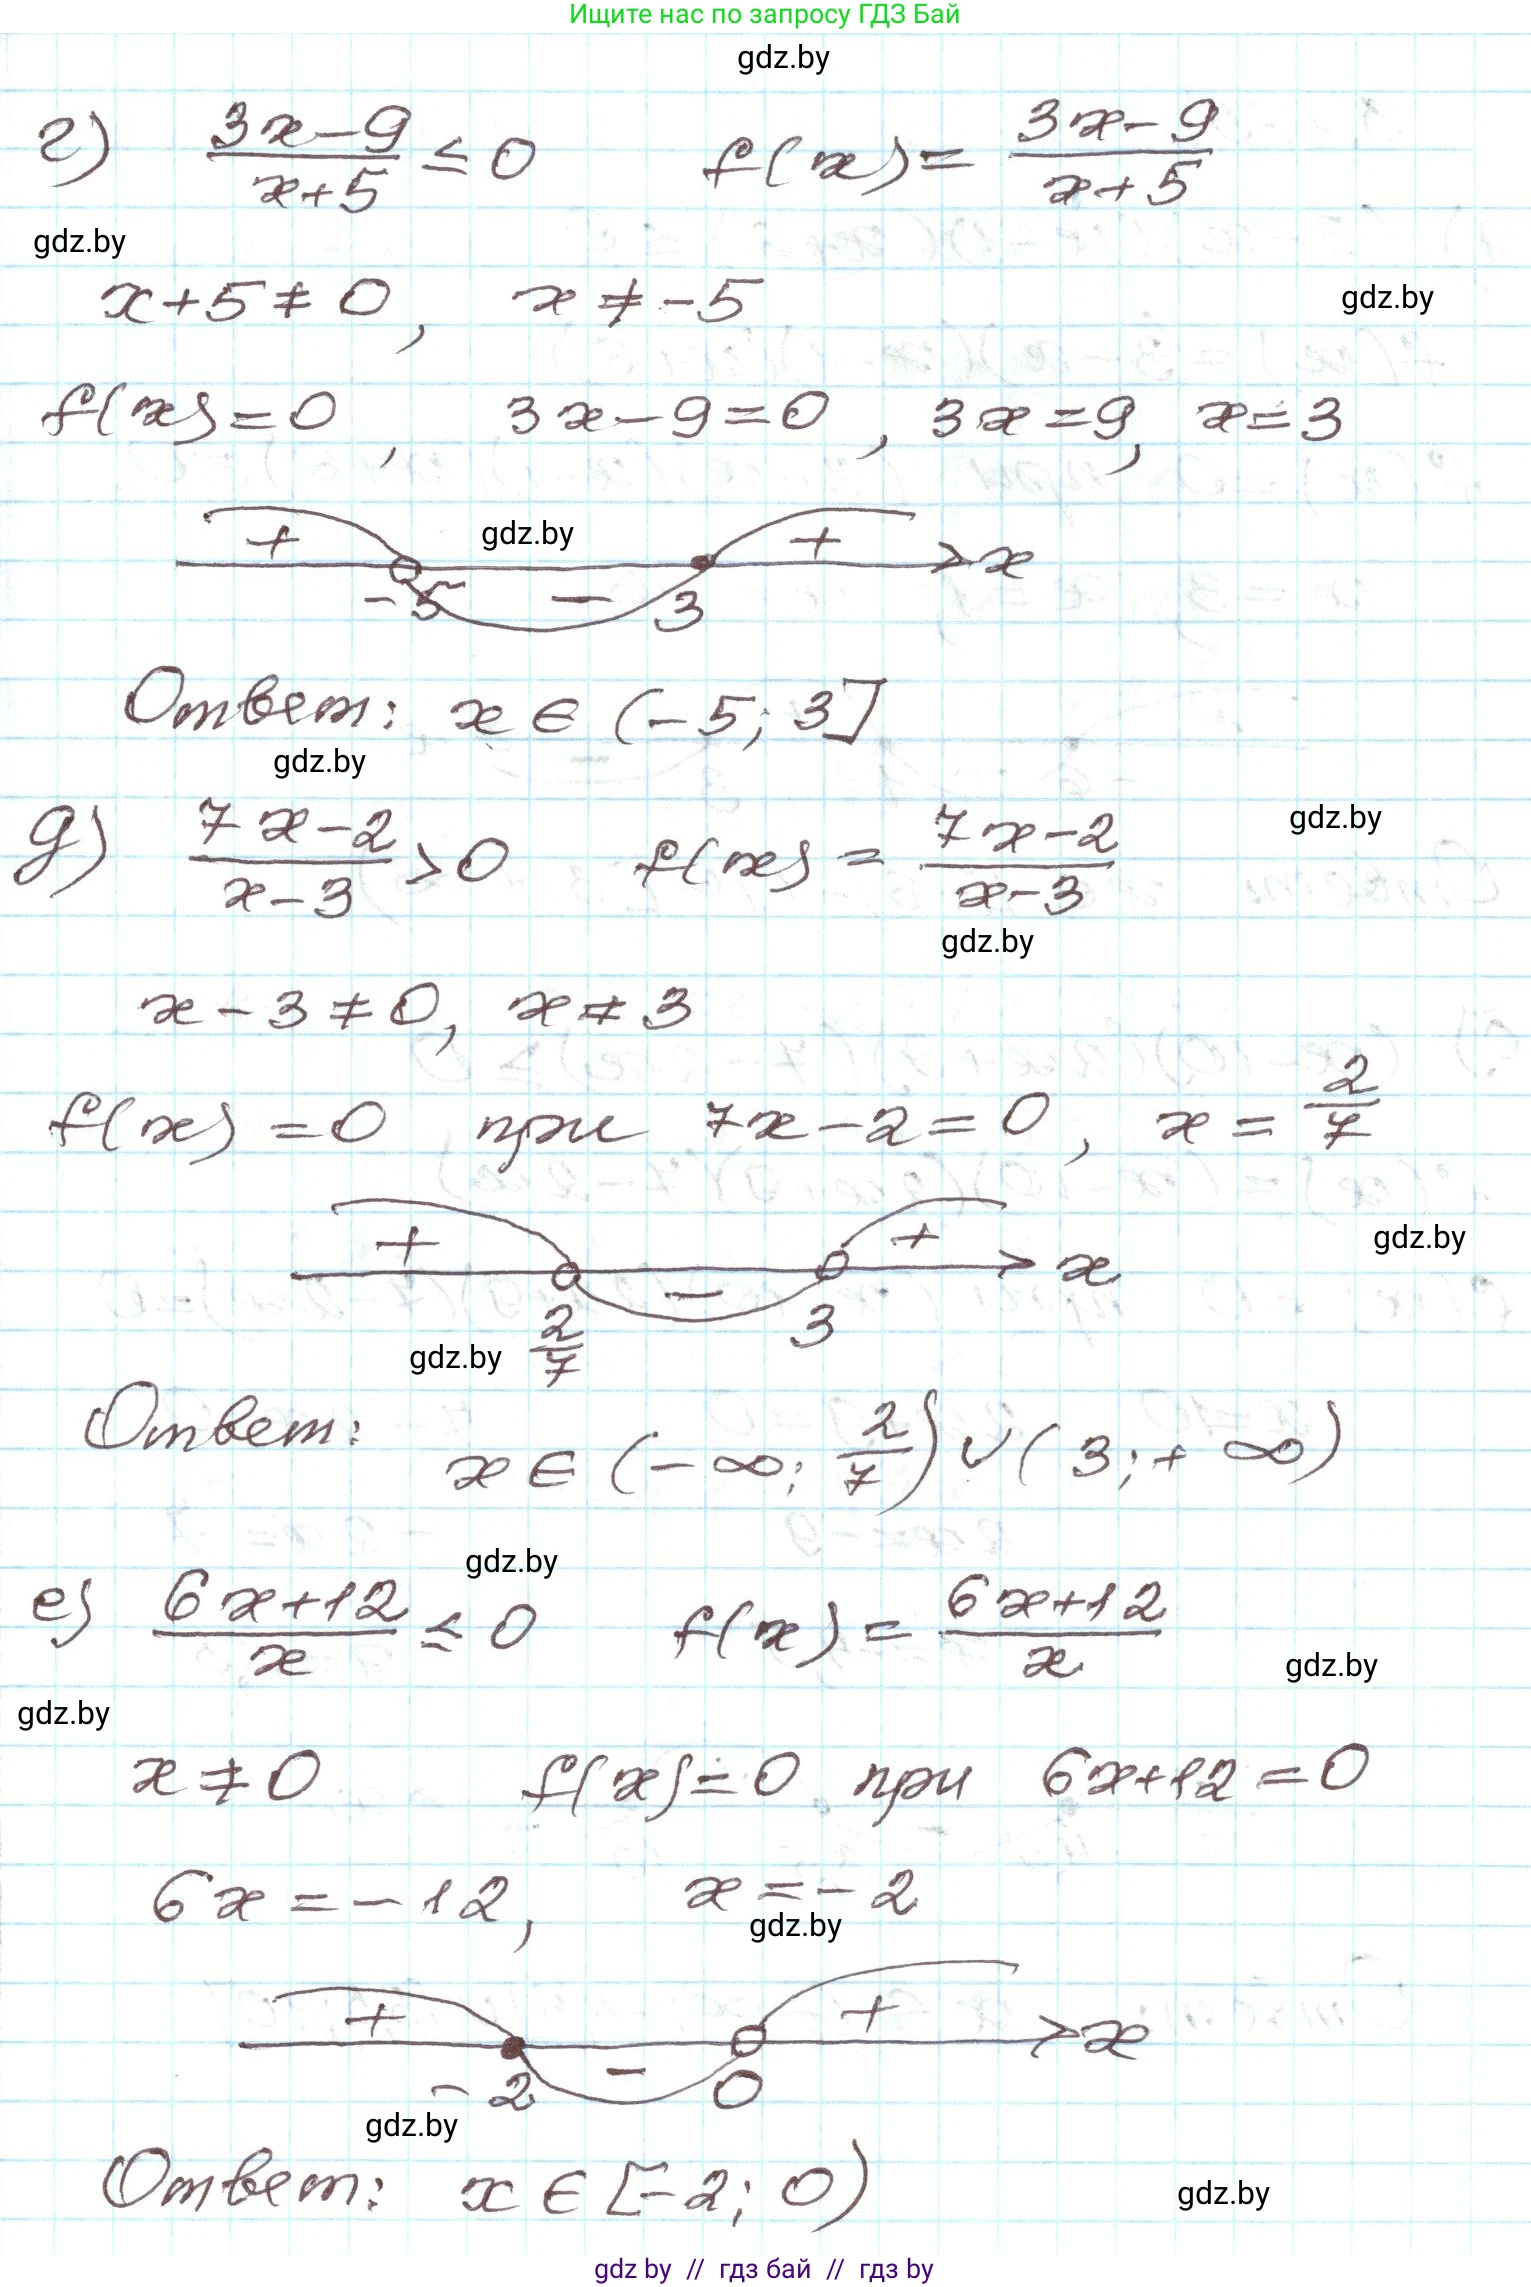 Ищите нас по запросу ГДЗ Бай
gdz.by
г) (3x-9)/(x+5) ≤ 0 f(x) = (3x-9)/(x+5)
gdz.by
x+5≠0, x≠-5 gdz.by
f(x)=0, 3x-9=0, 3x=9, x=3
gdz.by
+ + x
-5 - 3
Ответ: x ∈ (-5; 3]
gdz.by
д) (7x-2)/(x-3) > 0 f(x) = (7x-2)/(x-3) gdz.by
gdz.by
x-3≠0, x≠3
f(x)=0 при 7x-2=0, x=2/7
+ - + x gdz.by
2/7 3
gdz.by
Ответ: x∈(-∞; 2/7)∪(3;+∞)
gdz.by
е) (6x+12)/x ≤ 0 f(x) = (6x+12)/x
gdz.by
gdz.by
x≠0 f(x)=0 при 6x+12=0
6x=-12, x=-2
gdz.by
+ + x
-2 - 0
gdz.by
Ответ: x∈[-2; 0)
gdz.by
gdz by // гдз бай // гдз by